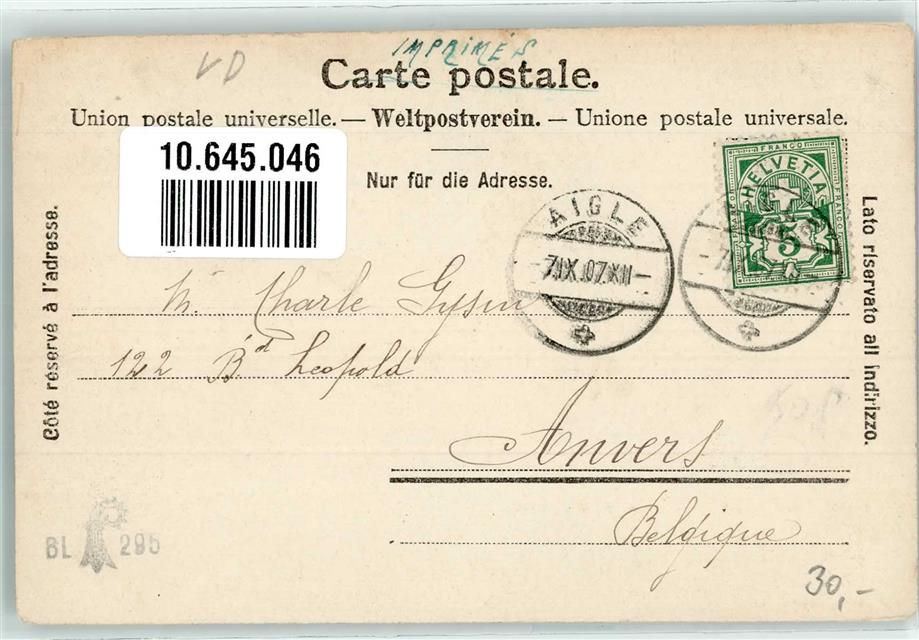 VD
IMPRIMÉS
Carte postale.
Union postale universelle. — Weltpostverein. — Unione postale universale.
10.645.046
Nur für die Adresse.
FRANCO
HELVETIA
FRANCO
5
AIGLE
7.IX.07.XII
Côté réservé à l'adresse.
Lato riservato all indirizzo.
M. Charle Gysin
122 Bd Leopold
Anvers
Belgique
BL 295
30,-